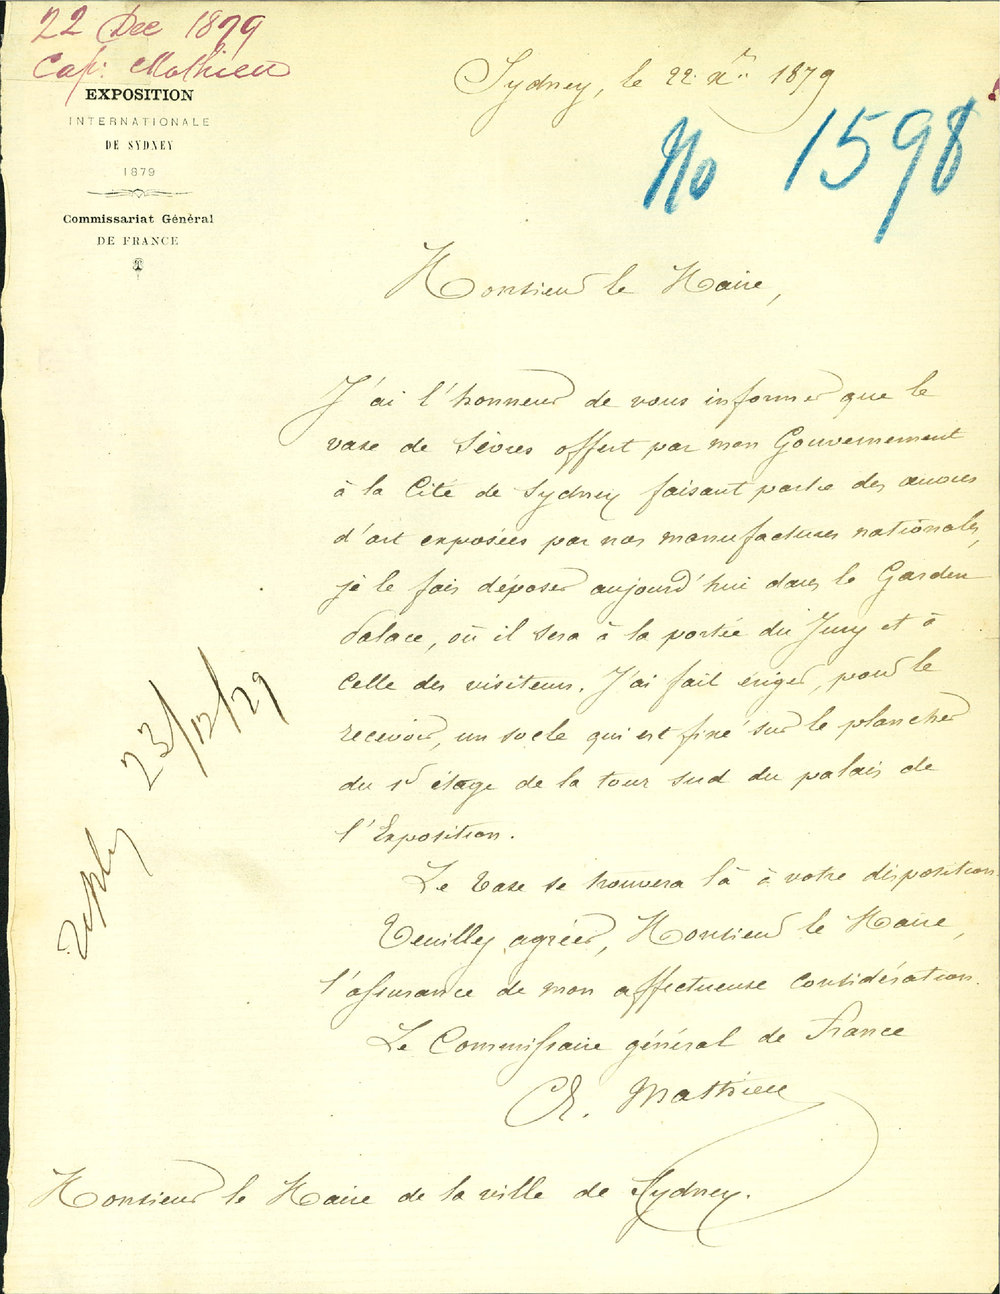 22 Dec 1879
Cap: Mathieu
EXPOSITION
INTERNATIONALE
DE SYDNEY
1879
Commissariat Général
DE FRANCE
Sydney, le 22 Xbre 1879
No 1598
Monsieur le Maire,
J'ai l'honneur de vous informer que le
vase de Sèvres offert par mon Gouvernement
à la Cité de Sydney faisant partie des œuvres
d'art exposées par nos manufactures nationales,
je le fais déposer aujourd'hui dans le Garden
Palace, où il sera à la portée du Jury et à
celle des visiteurs. J'ai fait ériger, pour le
recevoir, un socle qui est fixé sur le plancher
du 1er étage de la tour sud du palais de
l'Exposition.
Le Vase se trouvera là à votre disposition.
Veuillez agréer, Monsieur le Maire,
l'assurance de mon affectueuse considération.
Le Commissaire général de France
Ch. Mathieu
Monsieur le Maire de la ville de Sydney.
reply 23/12/79